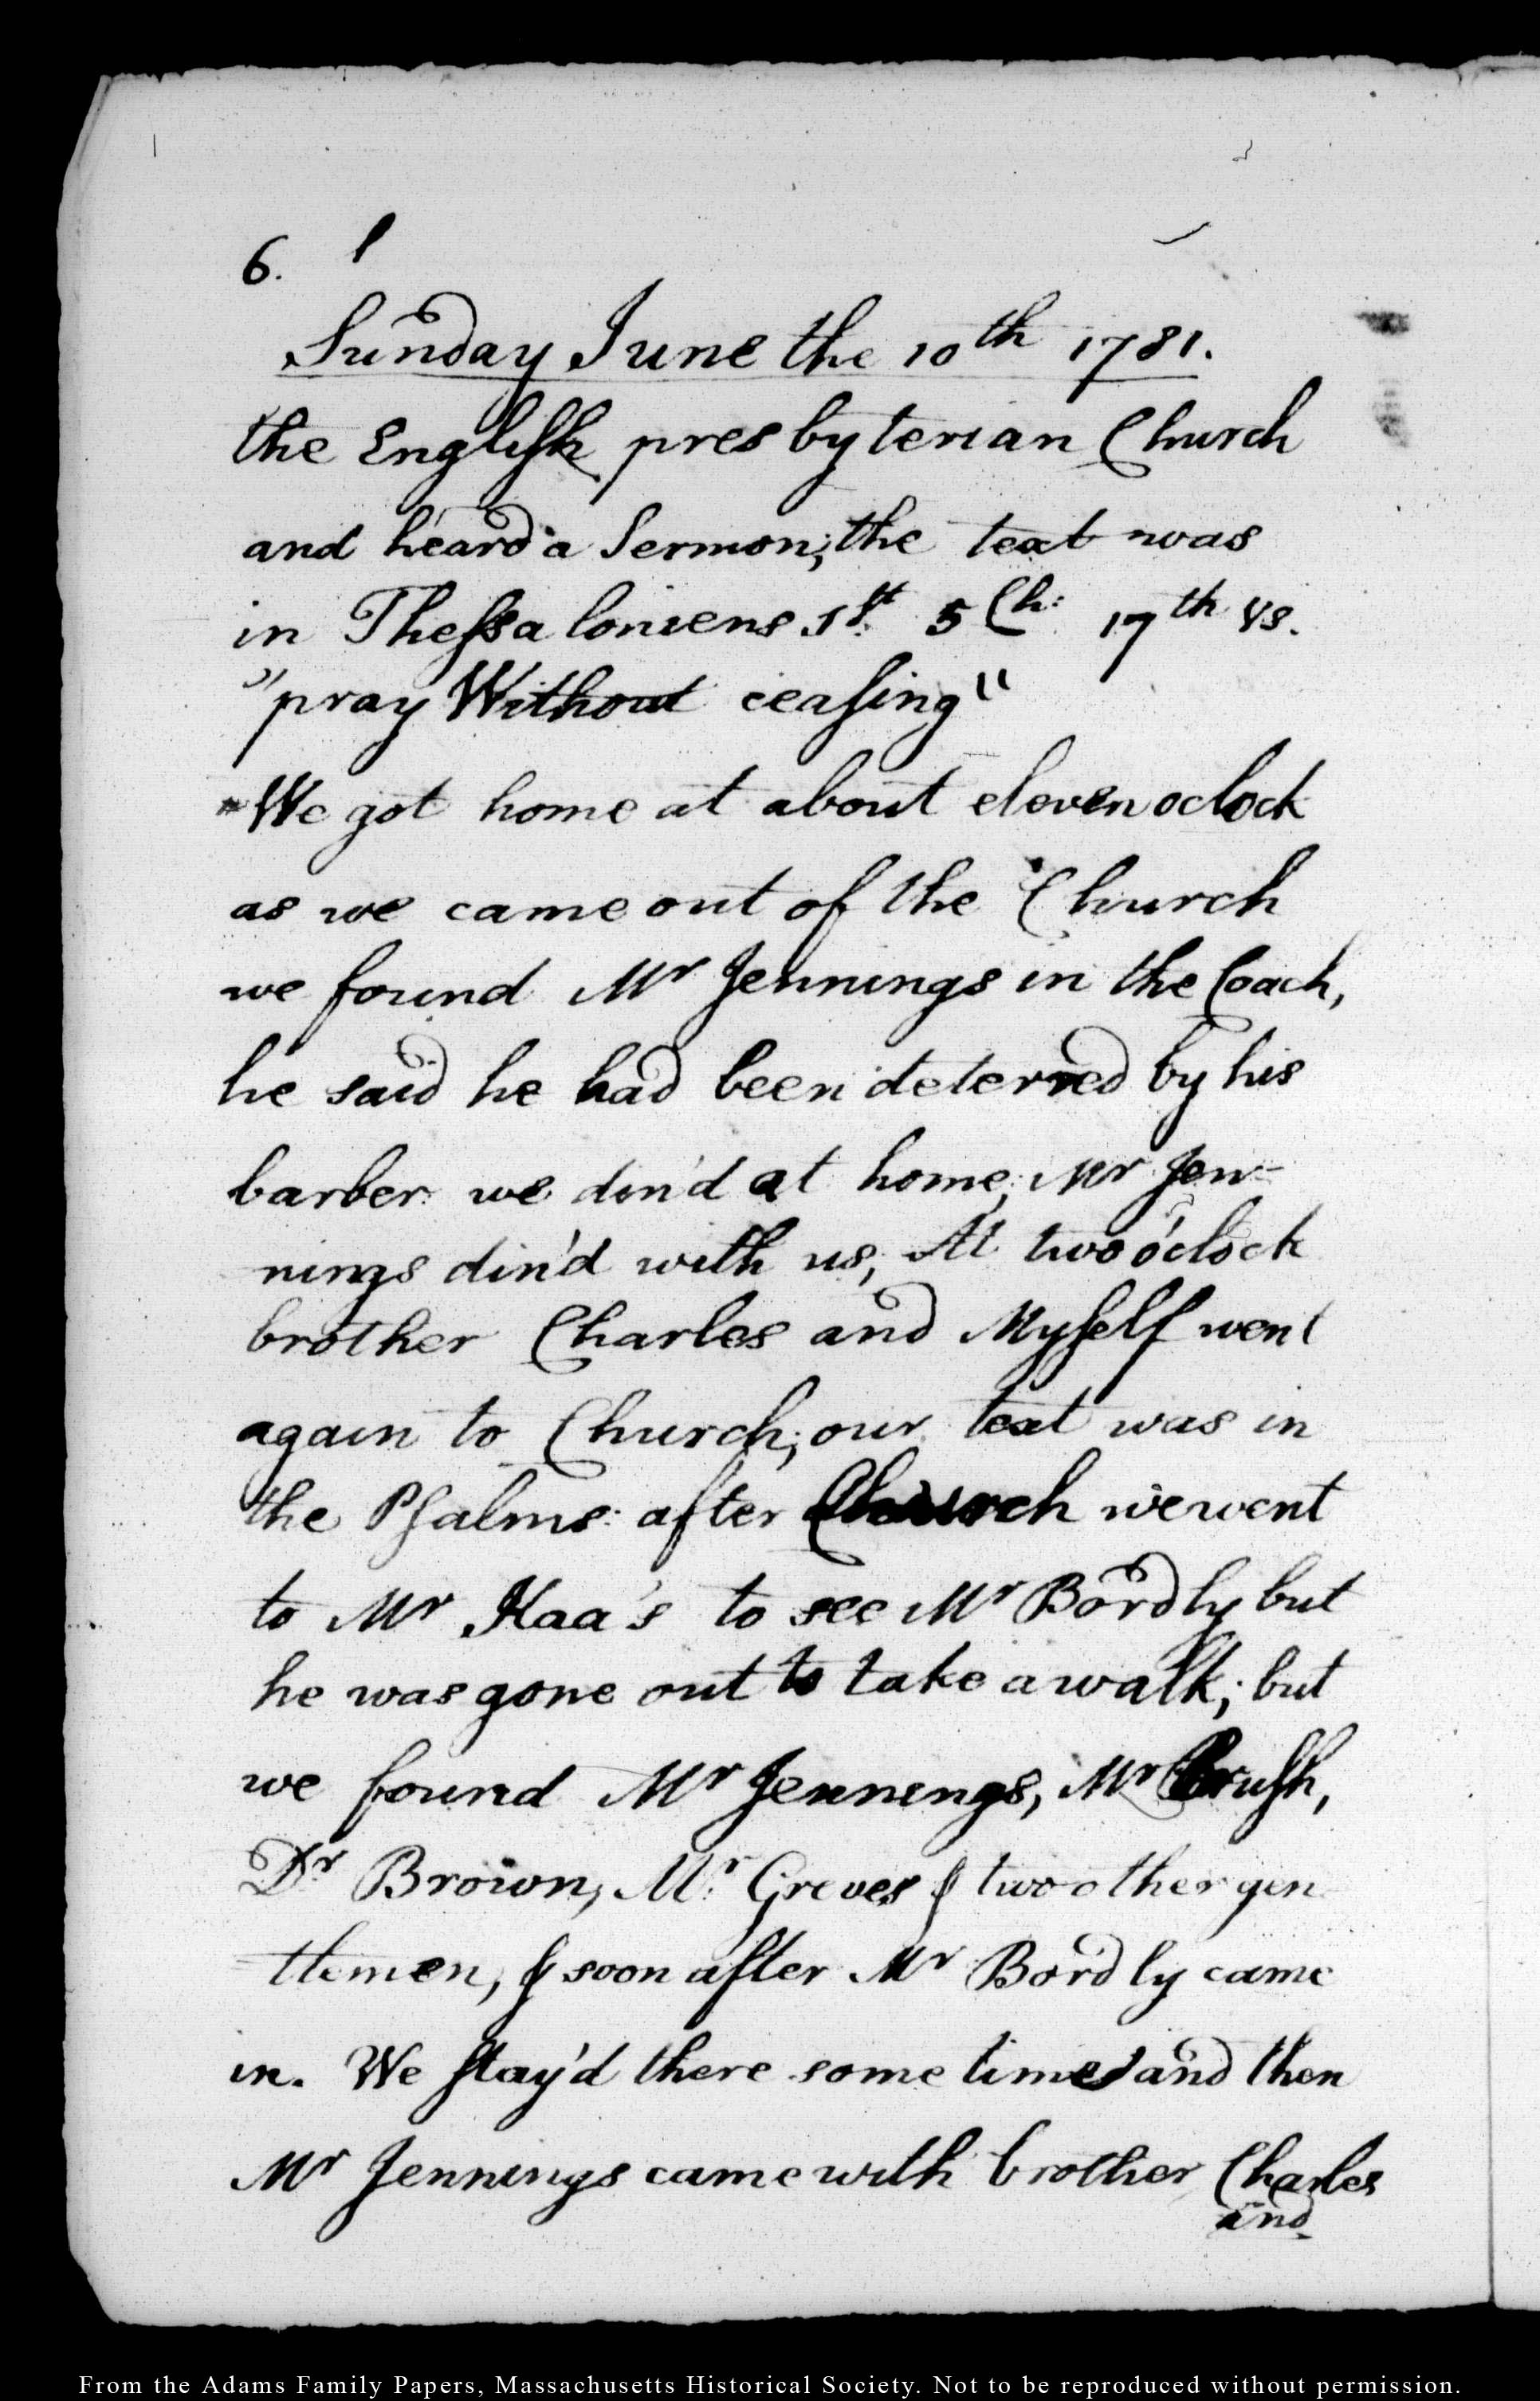 6.
Sunday June the 10th 1781.
the English presbyterian Church
and heard a Sermon; the text was
in Thessaloniens 1st 5 Ch: 17th vs.
"pray Without ceasing"
We got home at about eleven oclock
as we came out of the Church
we found Mr Jennings in the Coach,
he said he had been deterred by his
barber we din'd at home, Mr Jen-
nings din'd with us, At two o'clock
brother Charles and Myself went
again to Church; our text was in
the Psalms after Church we went
to Mr Haa's to see Mr Bordly but
he was gone out to take a walk; but
we found Mr Jennings, Mr Brush,
Dr Brown, Mr Greves & two other gen
tlemen, & soon after Mr Bordly came
in. We stay'd there some time and then
Mr Jennings came with brother Charles
and
From the Adams Family Papers, Massachusetts Historical Society. Not to be reproduced without permission.